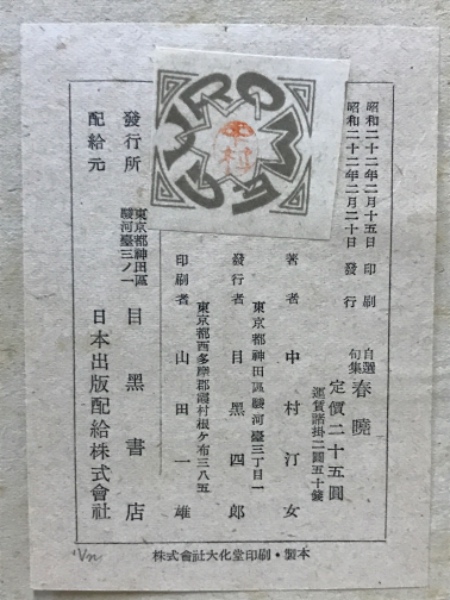 昭和二十二年二月十五日 印刷
昭和二十二年二月二十日 發行
自選句集 春曉
定價二十五圓
運賃諸掛二圓五十錢
著者 中村汀女
東京都神田區駿河臺三丁目一
發行者 目黑四郎
東京都西多摩郡霞村根ケ布三八五
印刷者 山田一雄
發行所 東京都神田區駿河臺三ノ一 目黑書店
配給元 日本出版配給株式會社
株式會社大化堂印刷・製本